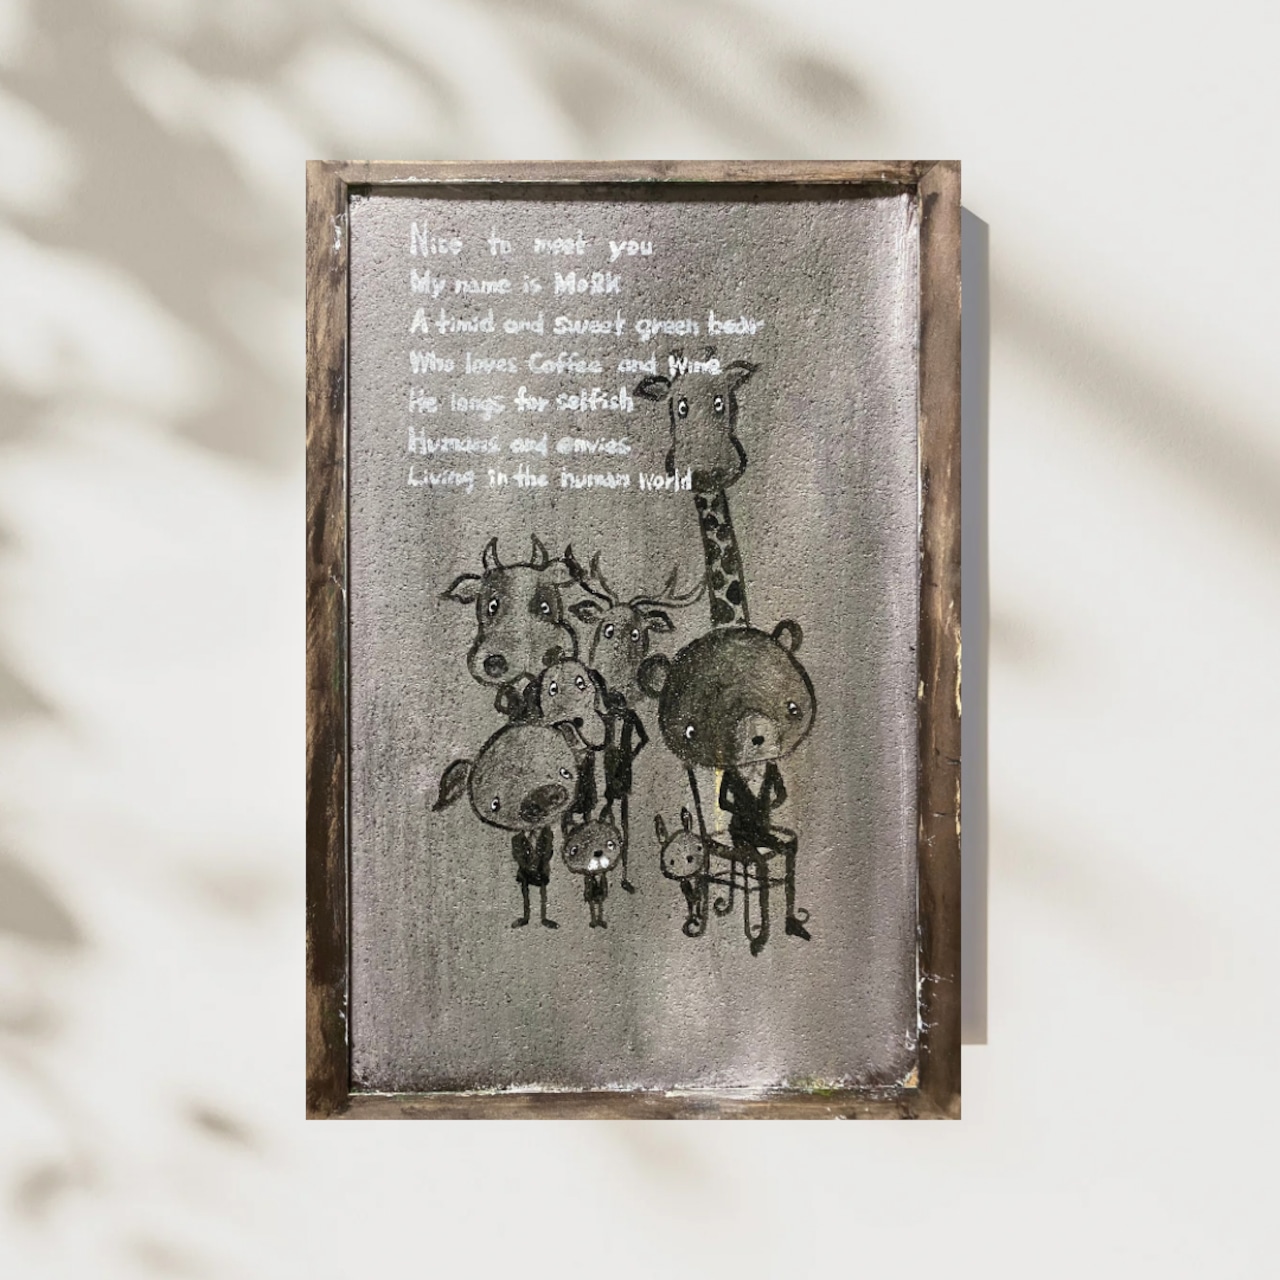 Nice to meet you
My name is MoRK
A timid and sweet green bear
Who loves Coffee and Wine
He longs for selfish
Humans and envies
Living in the human world